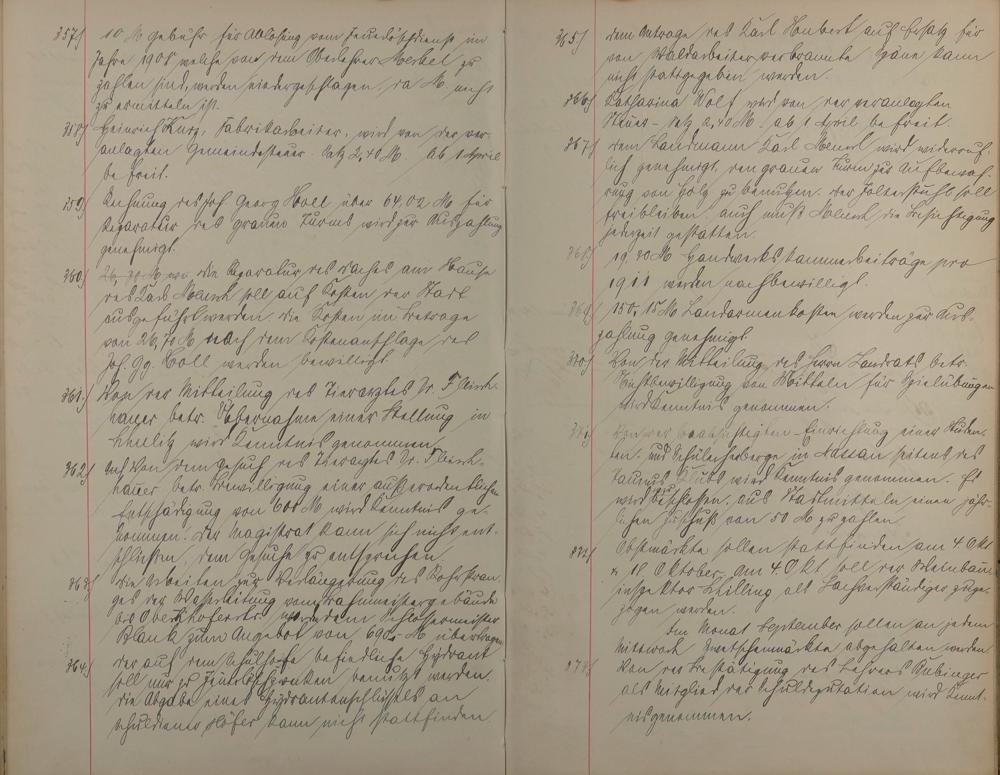 357) 10 M Gebühr für Ablösung vom Feuerlöschdienst im
Jahre 1908 welche von dem Oberlehrer Merkel zu
zahlen sind, werden niedergeschlagen, da M. nicht
zu ermitteln ist.
358) Heinrich Kurz, Fabrikarbeiter, wird von der ver-
anlagten Gemeindesteuer Satz 2,40 M. ab 1 April
befreit.
359) Rechnung des Joh. Georg Holl über 64,02 M für
Reparatur des grauen Turms wird zur Auszahlung
genehmigt.
360) 26,70 M die Reparatur des Daches am Hause
des Karl soll auf Kosten der Stadt
ausgeführt werden. die Kosten im Betrage
von 26,70 M nach dem Kostenanschlage des
Joh. Gg. Holl werden bewilligt.
361) Von der Mitteilung des Tierarztes Dr. Fleisch-
hauer betr. Übernahme einer Stellung in
wird Kenntnis genommen.
362) Von dem Gesuch des Tierarztes Dr. Fleisch-
hauer betr. Bewilligung einer außerordentlichen
Entschädigung von 600 M wird Kenntnis ge-
nommen. Der Magistrat kann sich nicht ent-
schließen, dem Gesuche zu entsprechen.
363) die Arbeiten zur Verlängerung des Rohrstran-
ges der Wasserleitung vom Bahnmeistergebäude
bis Oberthoferts werden dem Schlossermeister
Blank zum Angebot von 690 M übertragen
364) der auf dem Schulhofe befindliche Hydrant
soll nur zu Feuerlöschzwecken benutzt werden.
die Abgabe eines Hydrantenschlüssels an
Schuldiener Höfer kann nicht stattfinden
365) dem Antrage des Karl Heubert auf Ersatz für
von Waldarbeiter verbrannte kann
nicht stattgegeben werden.
366) Katharina Wolf wird von der veranlagten
Steuer - Satz 2,40 M. ab 1 April befreit.
367) dem Landmann Karl wird widerruf-
lich genehmigt, den grauen Turm zur Aufbewah-
rung von Holz zu benutzen. der soll
freibleiben auch muß die Besichtigung
jederzeit gestatten.
368) 19,20 M Handwerkskammerbeiträge pro
1911 werden nachbewilligt.
369) 150,15 M Landarmenkosten werden zur Aus-
zahlung genehmigt
370) Von der Mitteilung des Herrn Landrats betr.
Nichtbewilligung von Mitteln für Spielübungen
wird Kenntnis genommen.
371) Von der beabsichtigten Einrichtung einer Studen-
ten- und Schülerherberge in Nassau seitens des
Taunus Klubs wird Kenntnis genommen. Es
wird beschlossen, aus Stadtmitteln einen jähr-
lichen Zuschuß von 50 M zu zahlen
372) Obstmärkte sollen stattfinden am 4 Okt
u 18 Oktober, am 4. Okt soll der Weinbau-
inspektor Schilling als Sachverständiger zuge-
zogen werden.
Im Monat September sollen an jedem
Mittwoch Zwetschenmärkte abgehalten werden
373) Von der Bestätigung des Lehrers Aubinger
als Mitglied der Schuldeputation wird Kennt-
nis genommen.